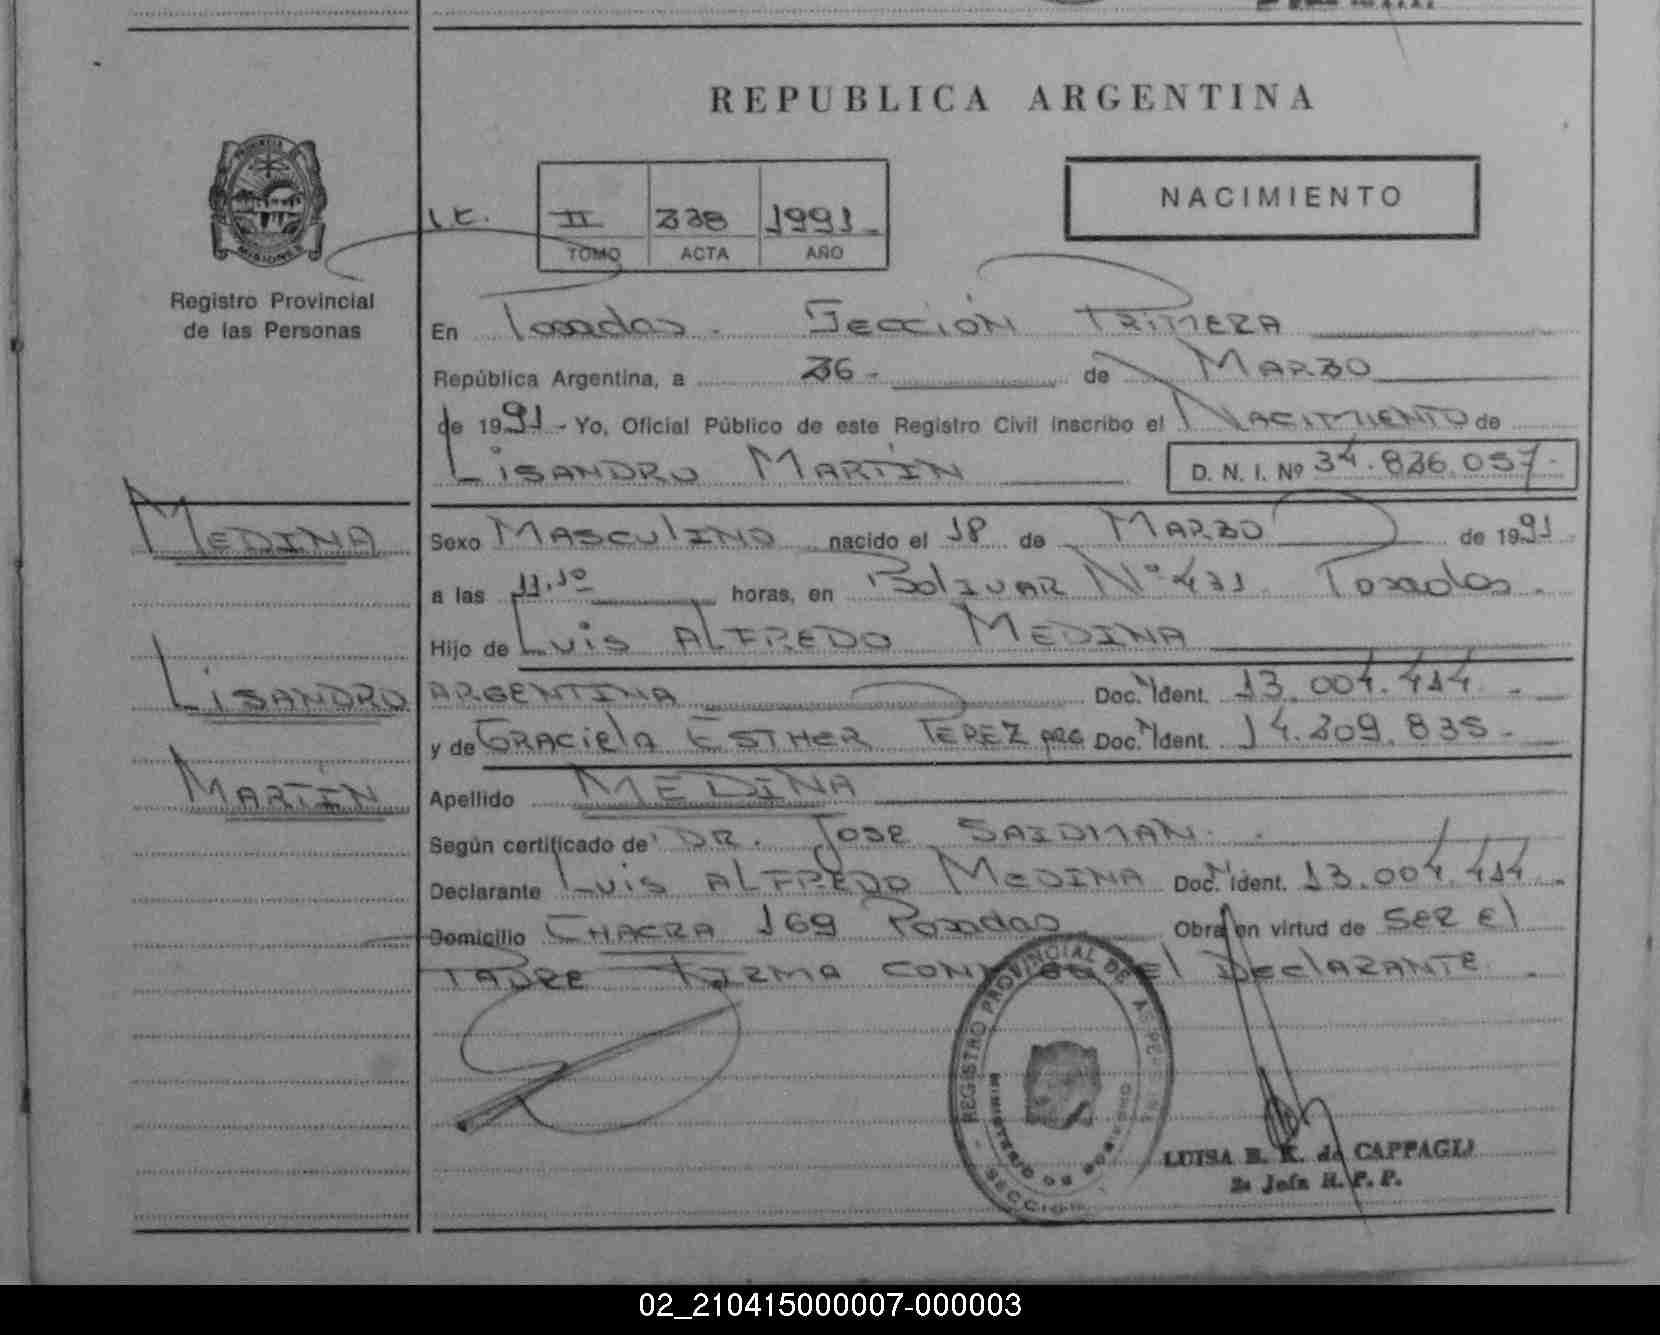 REPUBLICA ARGENTINA
PROVINCIA DE
MISIONES
Registro Provincial
de las Personas
NACIMIENTO
II 1991-
TOMO ACTA AÑO
En Posadas. Sección PRIMERA
República Argentina, a 26- de MARZO
de 1991- Yo, Oficial Público de este Registro Civil inscribo el NACIMIENTO de
LISANDRO MARTÍN D. N. I. Nº 34.826.057-
MEDINA
LISANDRO
MARTÍN
Sexo MASCULINO nacido el 18 de MARZO de 1991
a las 11.10 horas, en BOLIVAR Nº 431 Posadas.
Hijo de LUIS ALFREDO MEDINA
ARGENTINA Doc. N Ident. 13.004.414.-
y de GRACIELA ESTHER PEREZ ARG Doc. N Ident. 14.209.835-
Apellido MEDINA
Según certificado de DR. JOSE SAIDMAN.
Declarante LUIS ALFREDO MEDINA Doc. N Ident. 13.004.414
Domicilio CHACRA 169 Posadas Obra en virtud de SER EL
PADRE FIRMA EL DECLARANTE.
REGISTRO PROVINCIAL DE
MINISTERIO DE GOBIERNO
SECCION
LUISA E. K. de CAPPAGLI
2a Jefa R. P. P.
02_210415000007-000003